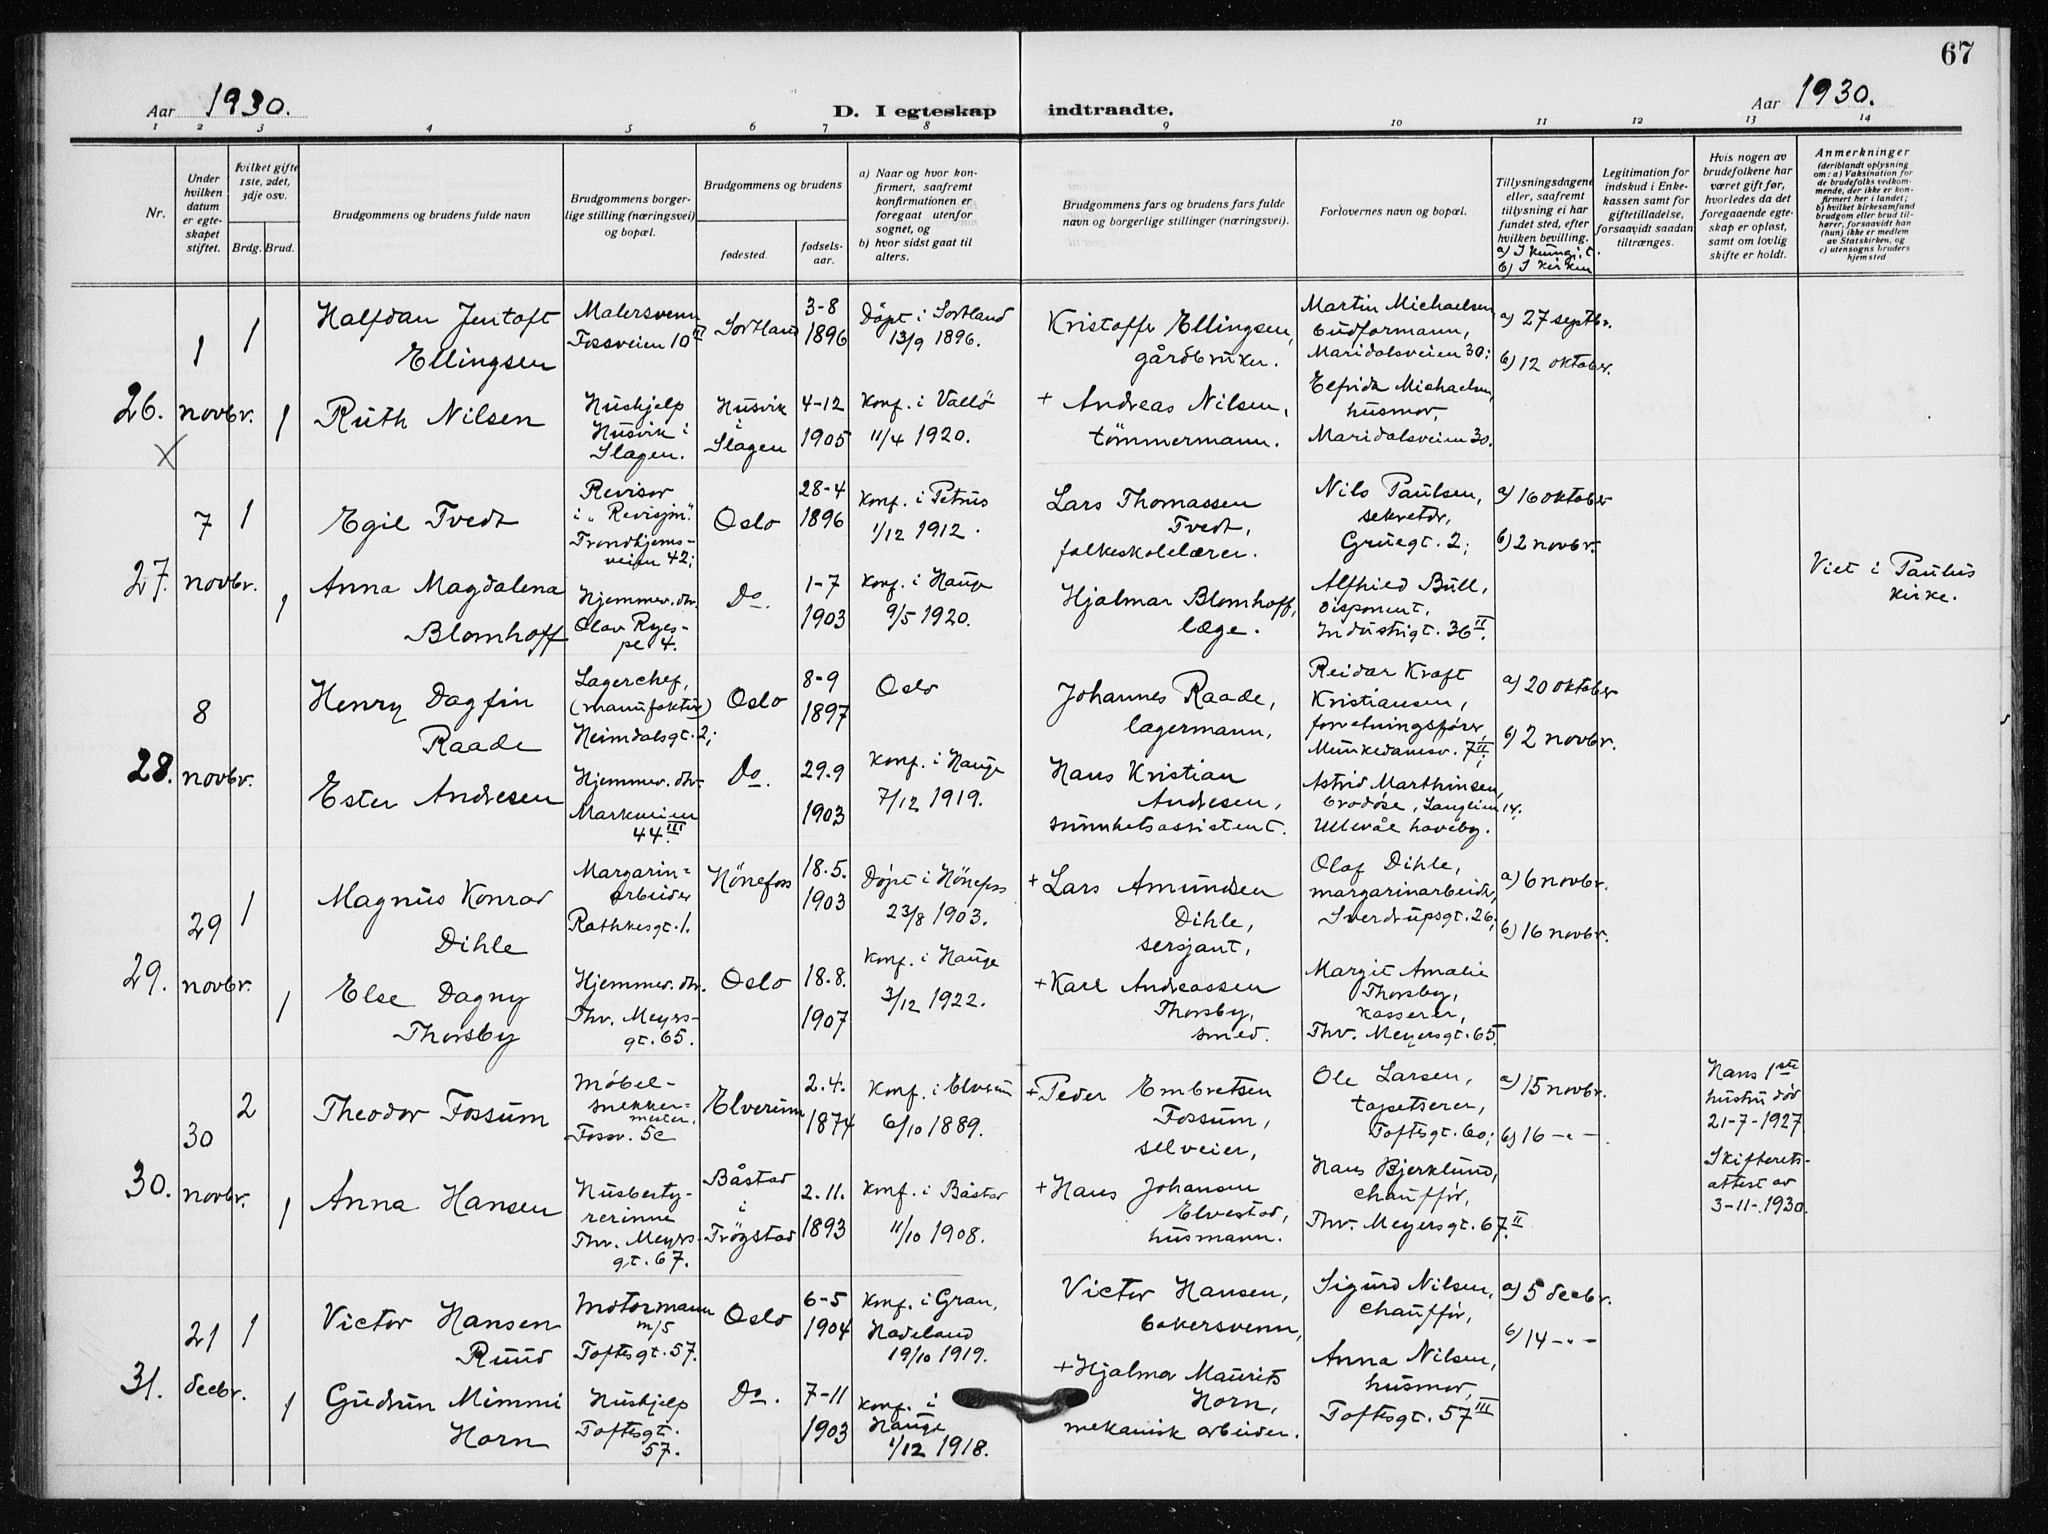 67
Aar 1930.
D. I egteskap indtraadte.
Aar 1930.
1 2 3 4 5 6 7 8 9 10 11 12 13 14
Nr.
Under
hvilken
datum
er egte-
skapet
stiftet.
Hvilket gifte
1ste, 2det,
3dje osv.
Brdg. Brud.
Brudgommens og brudens fulde navn
Brudgommens borger-
lige stilling (næringsvei)
og bopæl.
Brudgommens og brudens
fødested.
fødsels-
aar.
a) Naar og hvor kon-
firmert, saafremt
konfirmationen er
foregaat utenfor
sognet, og
b) hvor sidst gaat til
alters.
Brudgommens fars og brudens fars fulde
navn og borgerlige stillinger (næringsvei).
Forlovernes navn og bopæl.
Tillysningsdagene
eller, saafremt
tillysning ei har
fundet sted, efter
hvilken bevilling.
b) I kirken
Legitimation for
indskud i Enke-
kassen samt for
giftetilladelse,
forsaavidt saadan
tiltrænges.
Hvis nogen av
brudefolkene har
været gift før,
hvorledes da det
foregaaende egte-
skap er opløst,
samt om lovlig
skifte er holdt.
Anmerkninger
(deriblandt oplysning
om: a) Vaksination for
de brudefolks vedkom-
mende, der ikke er kon-
firmert her i landet;
b) hvilket kirkesamfund
brudgom eller brud til-
hører, forsaavidt han
(hun) ikke er medlem
av Statskirken, og
c) utensogns bruders
hjemsted
26.
X
1
novbr.
1
Halfdan Jentoft
Ellingsen
Malersvenn
Fossveien 10 III
Sortland
3-8
1896
Døpt i Sortland
13/9 1896.
Kristoffer Ellingsen,
gårdbruker.
Martin Michaelsen
budformann,
Maridalsveien 30;
a) 27 septbr.
b) 12 oktober.
1
Ruth Nilsen
Hushjelp
Husvik i
Slagen.
Husvik
i
Slagen
4-12
1905
Konf. i Vallö
11/4 1920.
+ Andreas Nilsen,
tömmermann.
Elfrida Michaelsen,
husmor,
Maridalsveien 30.
27.
7
novbr.
1
Egil Tvedt
Revisor
i „Revisjon".
Trondhjems-
veien 42;
Oslo
28-4
1896
Konf. i Petrus
1/12 1912.
Lars Thomassen
Tvedt,
folkeskolelærer.
Nils Paulsen,
sekretær,
Gruegt. 2;
a) 16 oktober
b) 2 novbr.
1
Anna Magdalena
Blomhoff
Hjemmev. dtr.
Olav Ryes-
pl 4.
Do.
1-7
1903
Konf. i Hauge
9/5 1920.
Hjalmar Blomhoff,
læge.
Alfhild Bull,
disponent,
Industrigt. 36 II.
Viet i Paulus
kirke.
28.
8
novbr.
Henry Dagfin
Raade
Lagerchef,
(manufaktur)
Heimdalsgt. 2;
Oslo
8-9
1897
Oslo
Johannes Raade,
lagermann,
Reidar Kraft
Kristiansen,
forretningsfører,
Munkedamsv. 7 II;
a) 20 oktober
b) 2 novbr.
Ester Andresen
Hjemmev. dtr.
Markveien
44 III
Do.
29.9
1903
Konf. i Hauge
7/12 1919.
Hans Kristian
Andresen,
sunnhetsassistent.
Astrid Marthinsen,
brodøse, Langveien 14,
Ullevål haveby.
29.
29
novbr.
1
Magnus Konrad
Dihle
Margarin=
arbeider
Rathkesgt. 1.
Hönefoss
18.5.
1903
Døpt i Hönefoss
23/8 1903.
+ Lars Amundsen
Dihle,
sersjant,
Olaf Dihle,
margarinarbeider,
Sverdrupsgt. 26;
a) 6 novbr.
b) 16 novbr.
1
Else Dagny
Thorsby
Hjemmev. dtr.
Thv. Meyers-
gt. 65.
Oslo
18.8.
1907
Konf. i Hauge
3/12 1922.
+ Karl Andreassen
Thorsby,
smed.
Margit Amalie
Thorsby,
kasserer,
Thv. Meyersgt. 65.
30.
30
novbr.
2
Theodor Fossum
Möbel-
snekker-
mester,
Fossv. 5c
Elverum
2.4.
1874
Konf. i Elverum
6/10 1889.
+ Peder Embretsen
Fossum,
selveier,
Ole Larsen,
tapetserer,
Toftesgt. 60;
a) 15 novbr.
b) 16 -"-
Hans 1ste
hustru död
21-7-1927.
Skifterets-
attest av
3-11-1930.
1
Anna Hansen
Husbesty-
rerinne
Thv. Meyers-
gt. 67.
Båstad
i
Trögstad
2.11.
1893
Konf. i Båstad
11/10 1908.
+ Hans Johansen
Elvestad,
husmann.
Hans Bjerklund,
chaufför,
Thv. Meyersgt. 67 II.
31.
21
decbr.
1
Victor Hansen
Ruud
Motormann
m/s
Toftesgt. 57.
Oslo
6-5
1904
Konf. i Gran,
Hadeland
19/10 1919.
Victor Hansen,
bakersvenn,
Sigurd Nilsen,
chaufför,
a) 5 decbr.
b) 14 -"-
1
Gudrun Mimmi
Horn
Hushjelp
Toftesgt.
57.
Do.
7-11
1903
Konf. i
Hauge
1/12 1918.
+ Hjalmar Maurits
Horn,
mekanisk arbeider.
Anna Nilsen,
husmor,
Toftesgt. 57 III